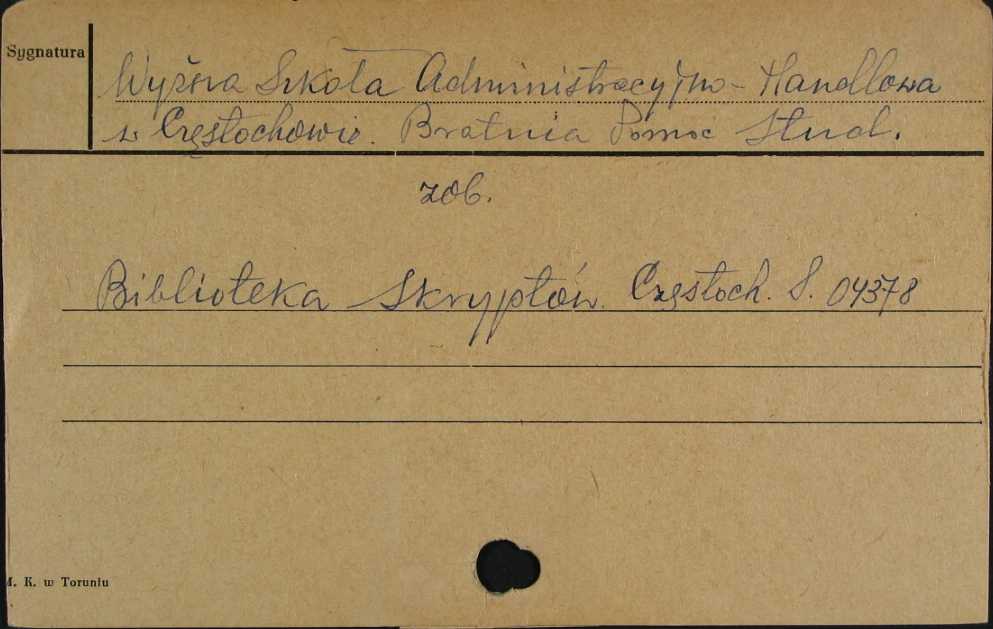 Sygnatura
Wyższa Szkoła Administracyjno-Handlowa
w Częstochowie. Bratnia Pomoc Stud.
zob.
Biblioteka Skryptów. Częstoch. S. 04378
M. K. w Toruniu